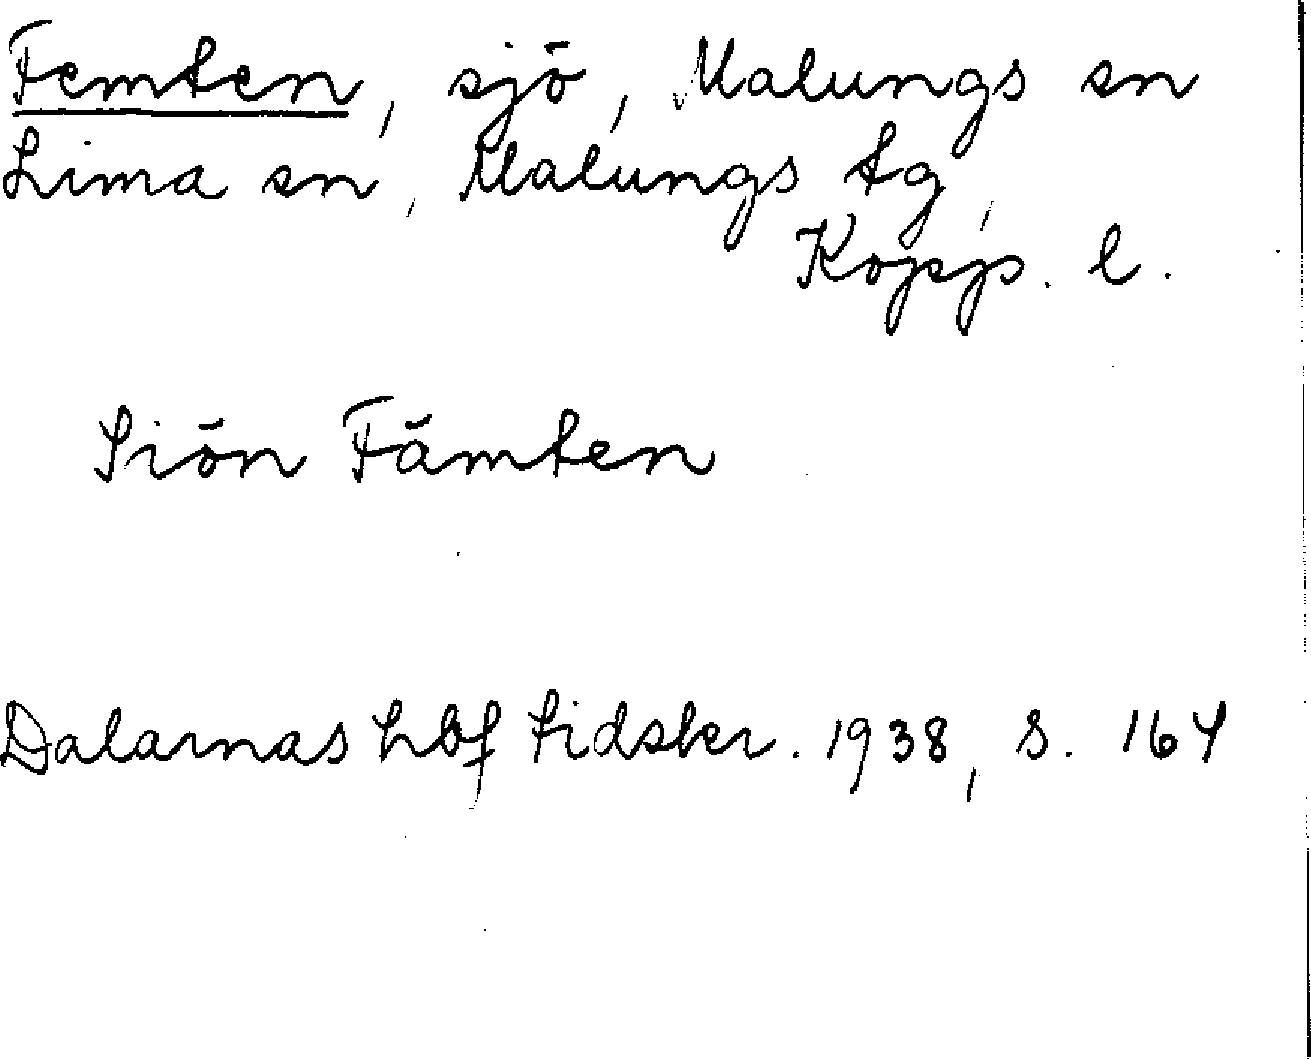 Femten, sjö, Malungs sn
Lima sn, Malungs tg,
Kopp. l.
Siön Fämten
Dalarnas hbf tidskr. 1938, s. 164